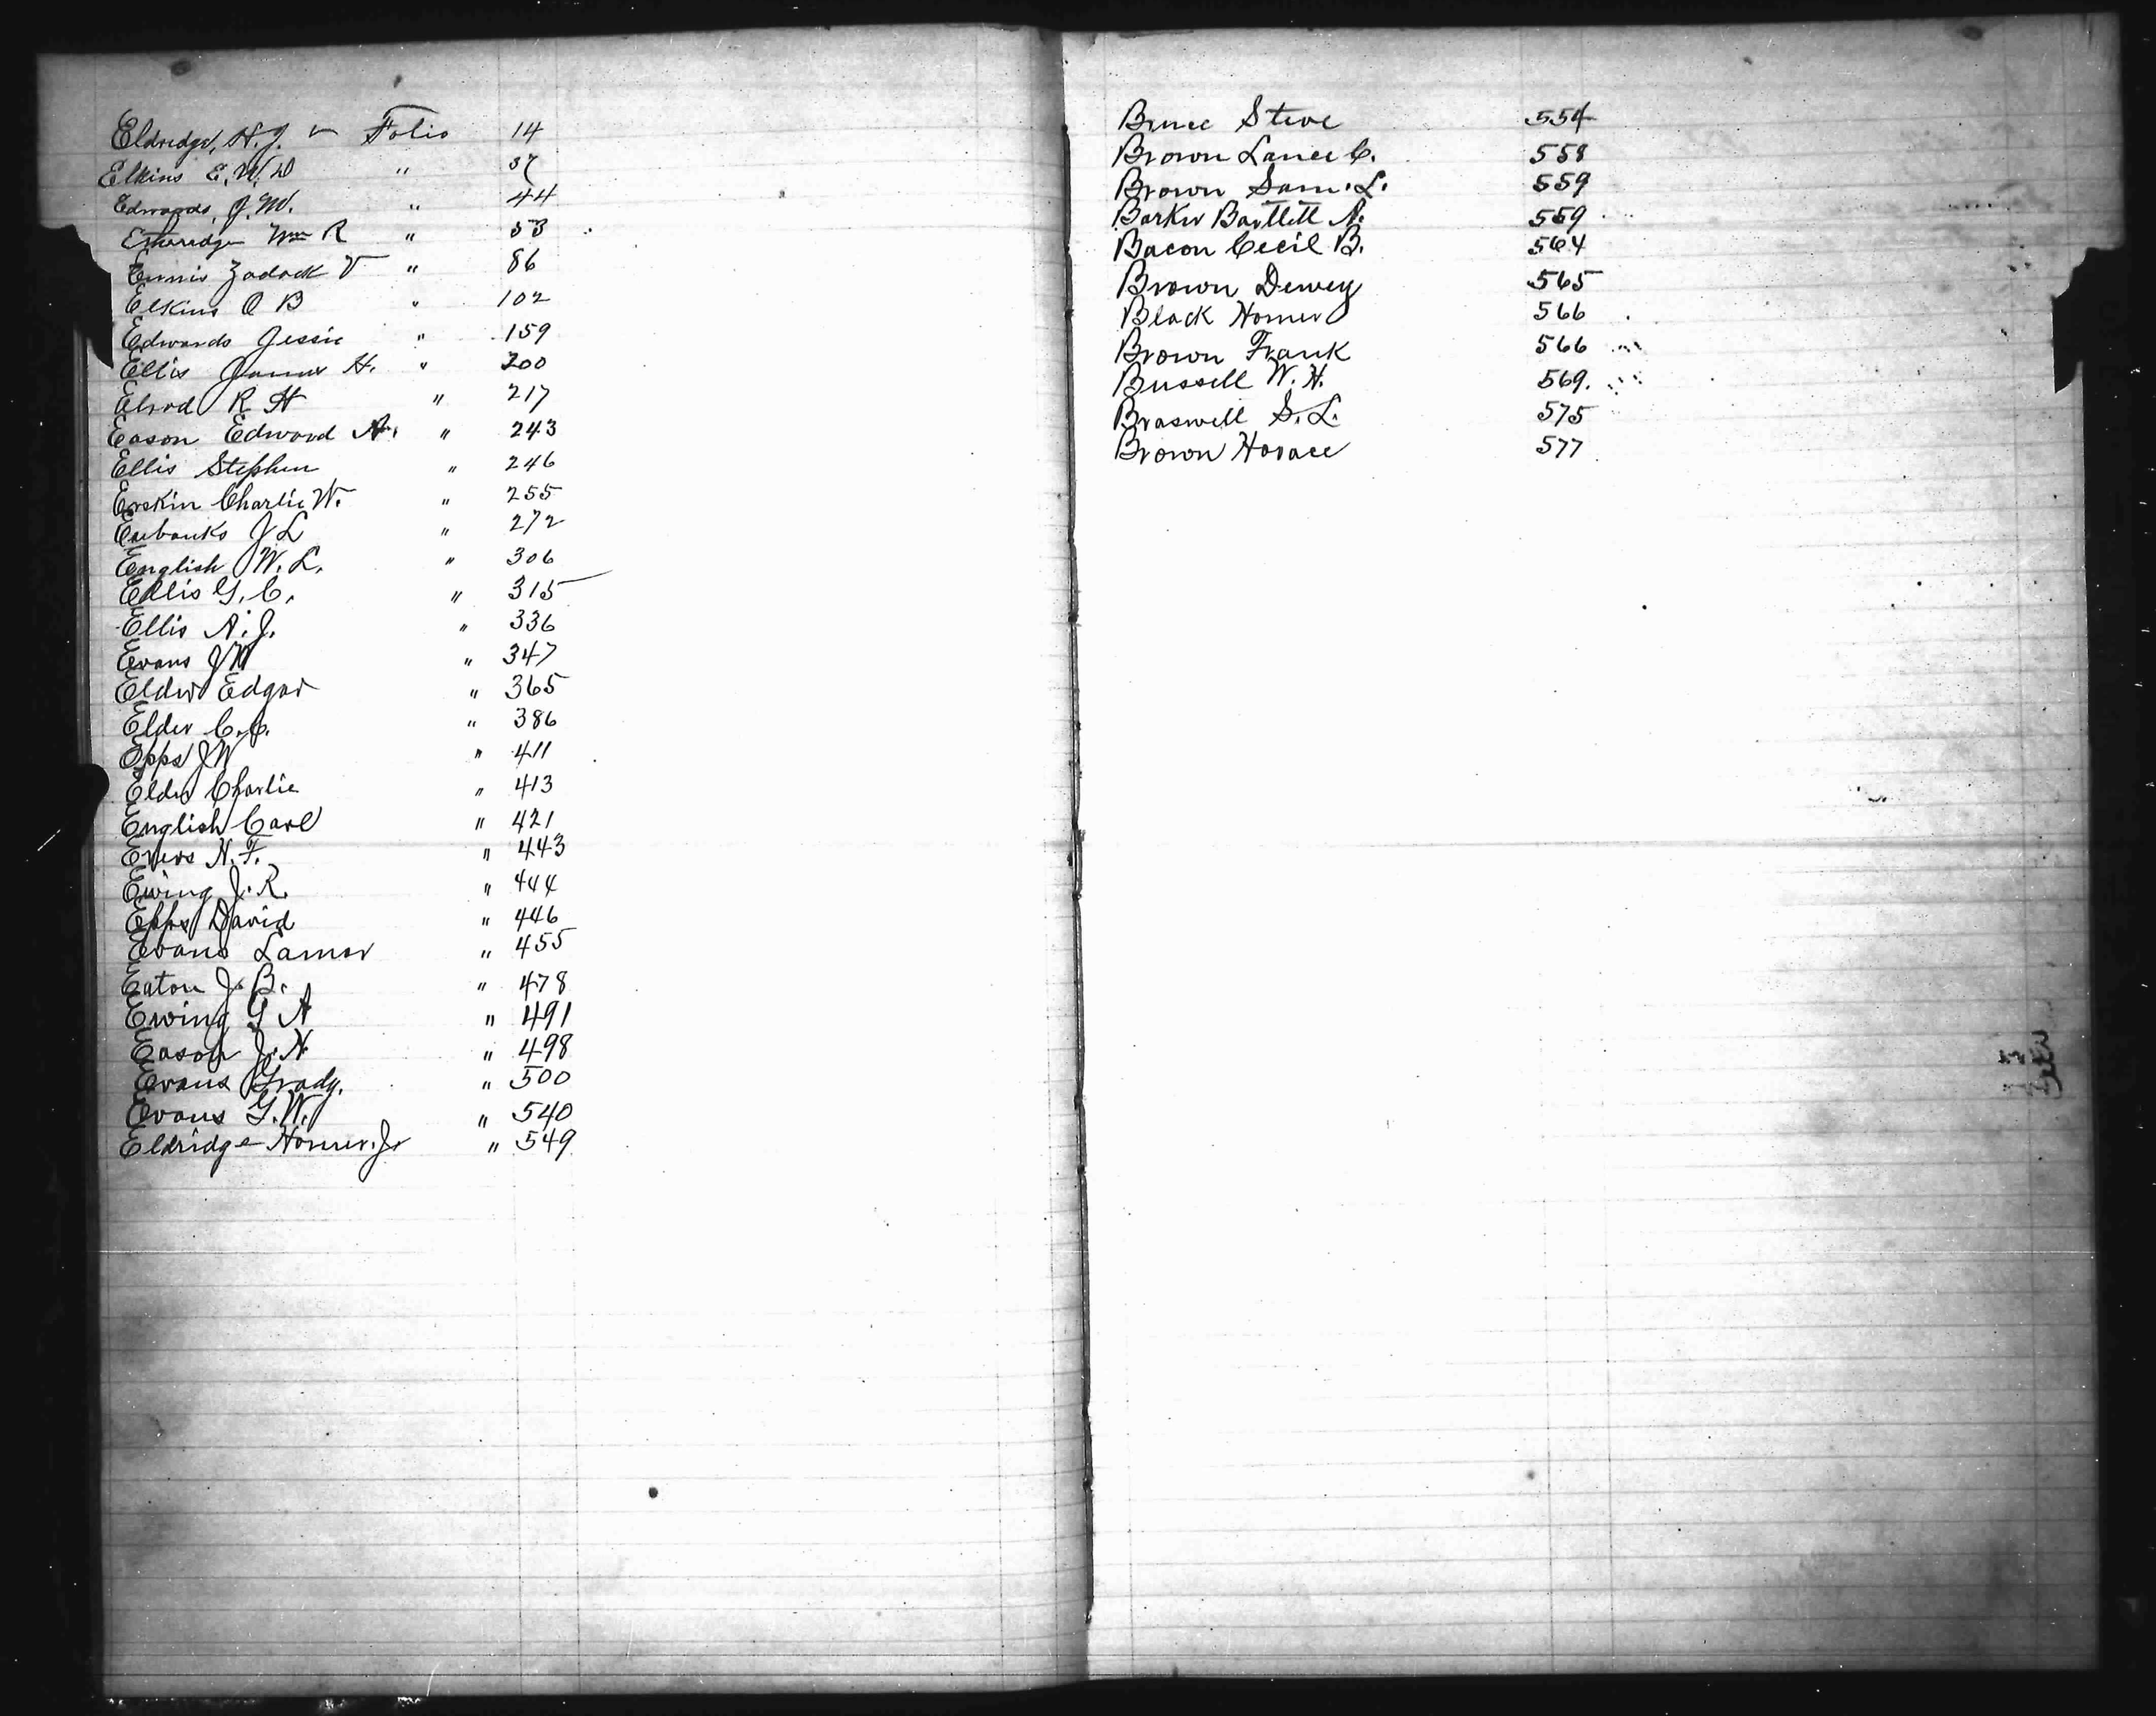 Eldridge, H. J. Folio 14
Elkins E. W. D " 37
Edwards, J. M. " 44
Etheridge Wm R " 53
Ennis Zadock T " 86
Elkins O B " 102
Edwards Jessie " 159
Ellis James H. " 200
Elrod R H " 217
Eason Edward A. " 243
Ellis Stephen " 246
Erskin Charlie W. " 255
Eubanks J L " 272
English W. L. " 306
Ellis G. C. " 315
Ellis A. J. " 336
Evans J W " 347
Elder Edgar " 365
Elder C. C. " 386
Epps J W " 411
Elder Charlie " 413
English Carl " 421
Evers N. F. " 443
Ewing J. R. " 444
Epps David " 446
Evans Lamar " 455
Eaton J. B. " 478
Ewing G A " 491
Eason J. N. " 498
Evans Grady. " 500
Evans G. W. " 540
Eldridge Homer Jr " 549
Bruce Steve 554
Brown Lance C. 558
Brown Sam. L. 559
Barker Bartlett A. 559
Bacon Cecil B. 564
Brown Dewey 565
Black Homer 566
Brown Frank 566
Bussell W. H. 569.
Braswell S. L. 575
Brown Horace 577